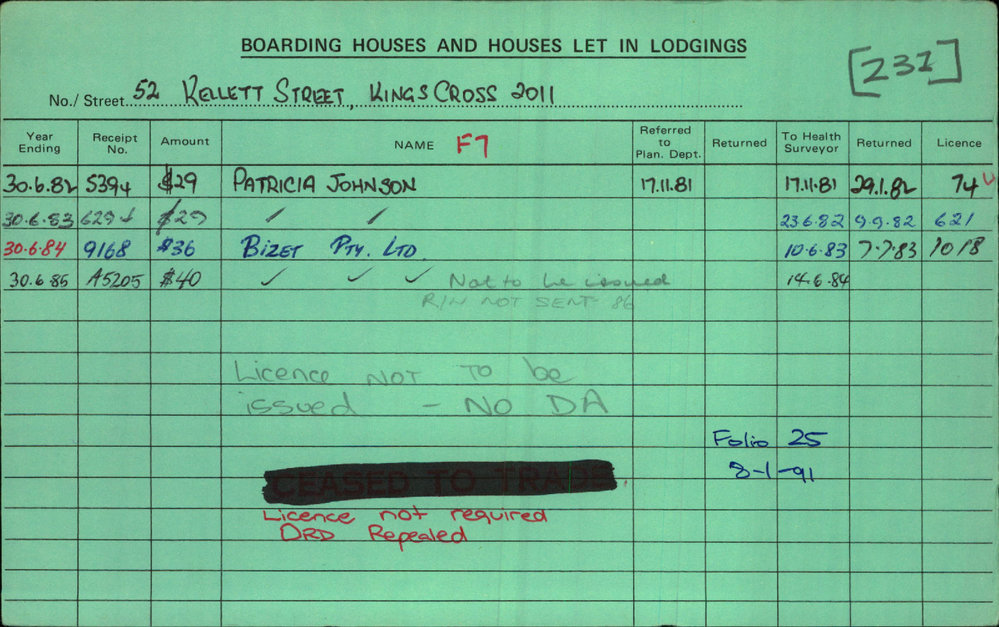 BOARDING HOUSES AND HOUSES LET IN LODGINGS
[231]
No./ Street 52 KELLETT STREET, KINGS CROSS 2011
Year Ending Receipt No. Amount NAME F7 Referred to Plan. Dept. Returned To Health Surveyor Returned Licence
30.6.82 5394 $29 PATRICIA JOHNSON 17.11.81 17.11.81 29.1.82 74
30.6.83 $29 ✓ ✓ 23.6.82 9.9.82 621
30.6.84 9168 $36 BIZET PTY. LTD. 10.6.83 7.7.83 1018
30.6.85 A5205 $40 ✓ ✓ ✓ Not to be issued 14.6.84
R/N NOT SENT 86
Licence NOT TO be
issued - NO DA
Folio 25
8-1-91
CEASED TO TRADE
Licence not required
ORD Repealed